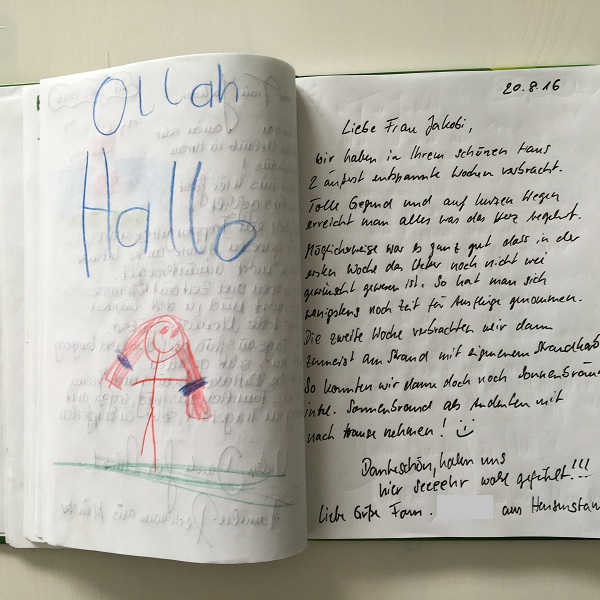 Ollah
Hallo
20.8.16
Liebe Frau Jakobi,
wir haben in Ihrem schönen Haus
2 äußerst entspannte Wochen verbracht.
Tolle Gegend und auf kurzen Wegen
erreicht man alles was das Herz begehrt.
Möglicherweise war es ganz gut dass in der
ersten Woche das Wetter noch nicht wie
gewünscht gewesen ist. So hat man sich
wenigstens noch Zeit für Ausflüge genommen.
Die zweite Woche verbrachten wir dann
zumeist am Strand mit eigenem Strandkorb
So konnten wir dann doch noch Sonnenbräune
inkl. Sonnenbrand als Andenken mit
nach Hause nehmen!
Dankeschön, haben uns
hier seeeehr wohl gefühlt!!!
Liebe Grüße Fam. aus